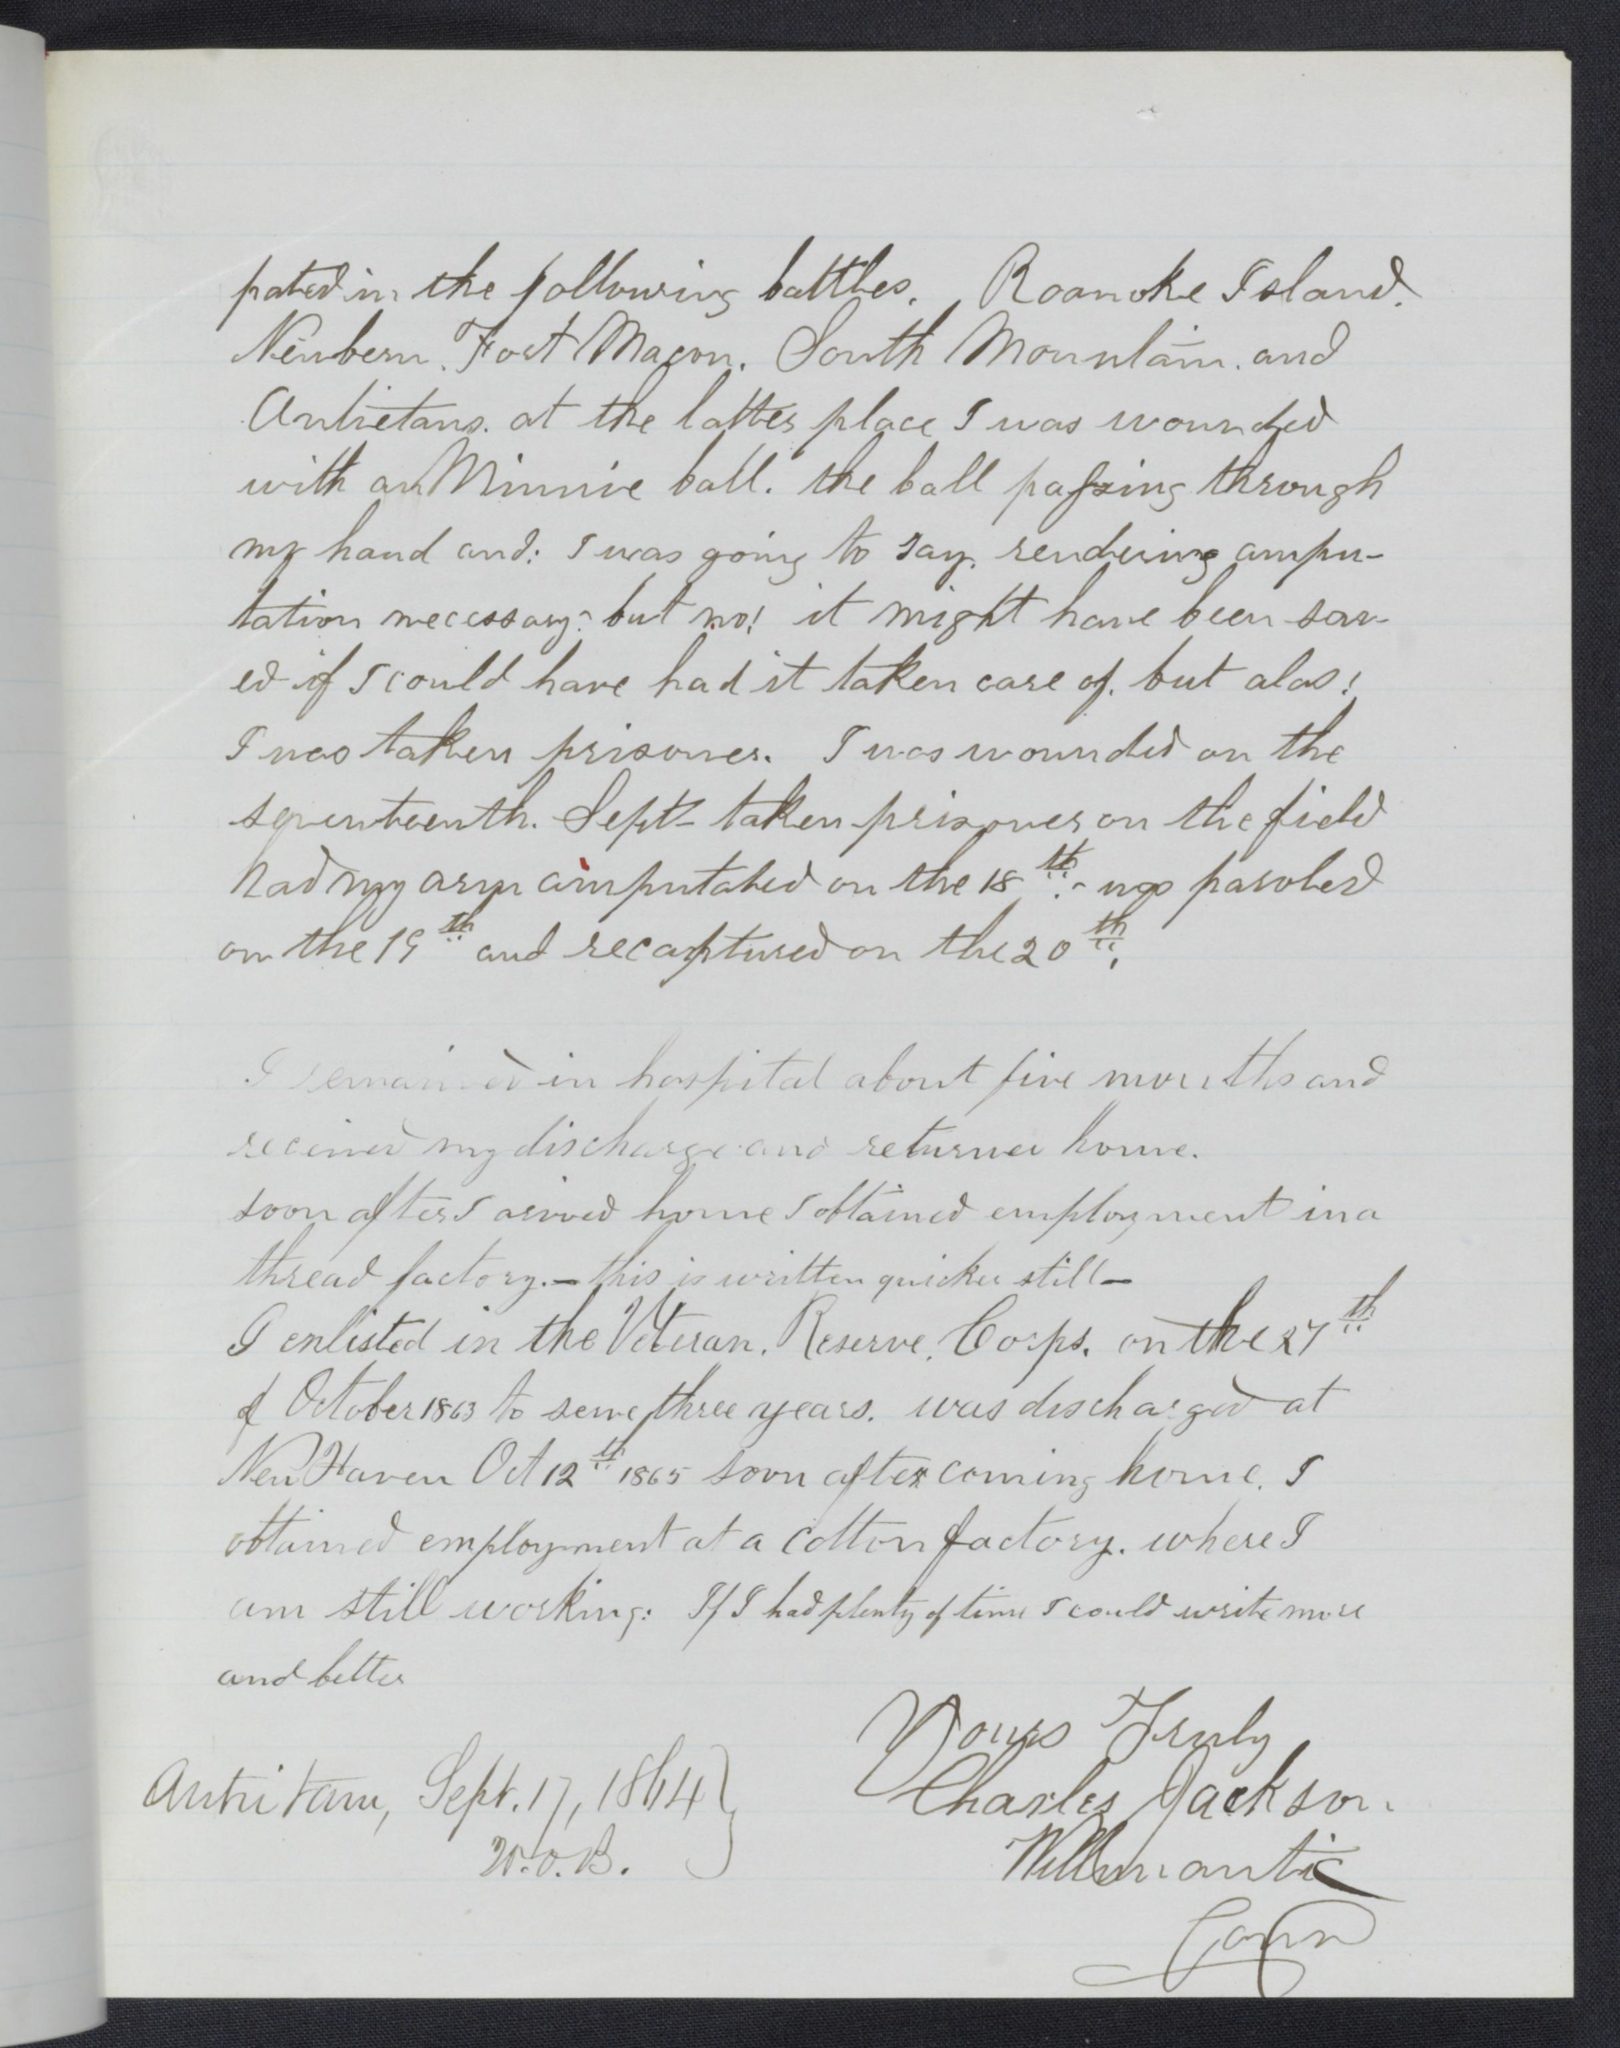 pated in the following battles. Roanoke Island.
Newbern. Fort Macon. South Mountain. and
Antietam. at the latter place I was wounded
with an Minnie ball. the ball passing through
my hand and: I was going to say. rendering ampu-
tation necessary: but no! it might have been sav-
ed if I could have had it taken care of. but alas!
I was taken prisoner. I was wounded on the
seventeenth. Sept- taken prisoner on the field
had my arm amputated on the 18th. - was paroled
on the 19th and recaptured on the 20th.
I remained in hospital about five months and
received my discharge and returned home.
soon after I arived home I obtained employment in a
thread factory. - this is written quicker still -
I enlisted in the Veteran. Reserve. Corps. on the 27th
of October 1863 to serve three years. was discharged at
New Haven Oct 12th 1865 soon after coming home. I
obtained employment at a cotton factory. where I
am still working: If I had plenty of time I could write more
and better
Yours Truly
Charles Jackson.
Willimantic
Conn
Antietam, Sept. 17, 1864
W.O.B.